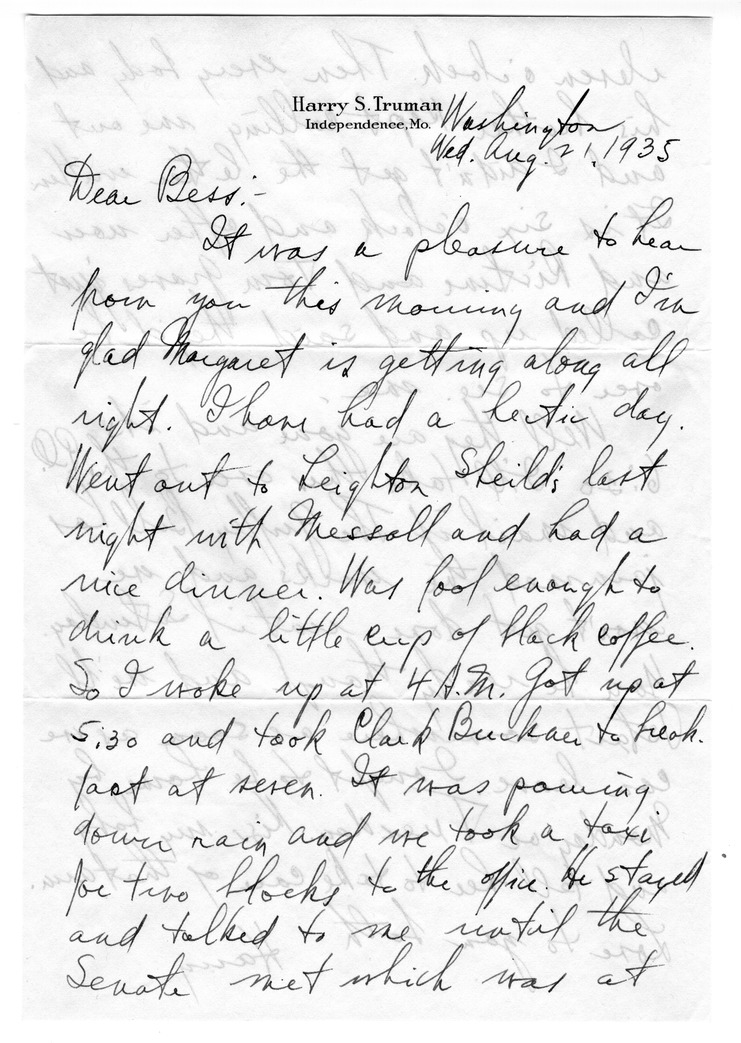 Harry S. Truman
Independence, Mo.
Washington
Wed. Aug. 21, 1935
Dear Bess:-
It was a pleasure to hear
from you this morning and I'm
glad Margaret is getting along all
right. I have had a hectic day.
Went out to Leighton Sheild's last
night with Messall and had a
nice dinner. Was fool enough to
drink a little cup of black coffee.
So I woke up at 4 A.M. Got up at
5:30 and took Clark Buckner to break-
fast at seven. It was pouring
down rain and we took a taxi
for two blocks to the office. He stayed
and talked to me until the
Senate met which was at